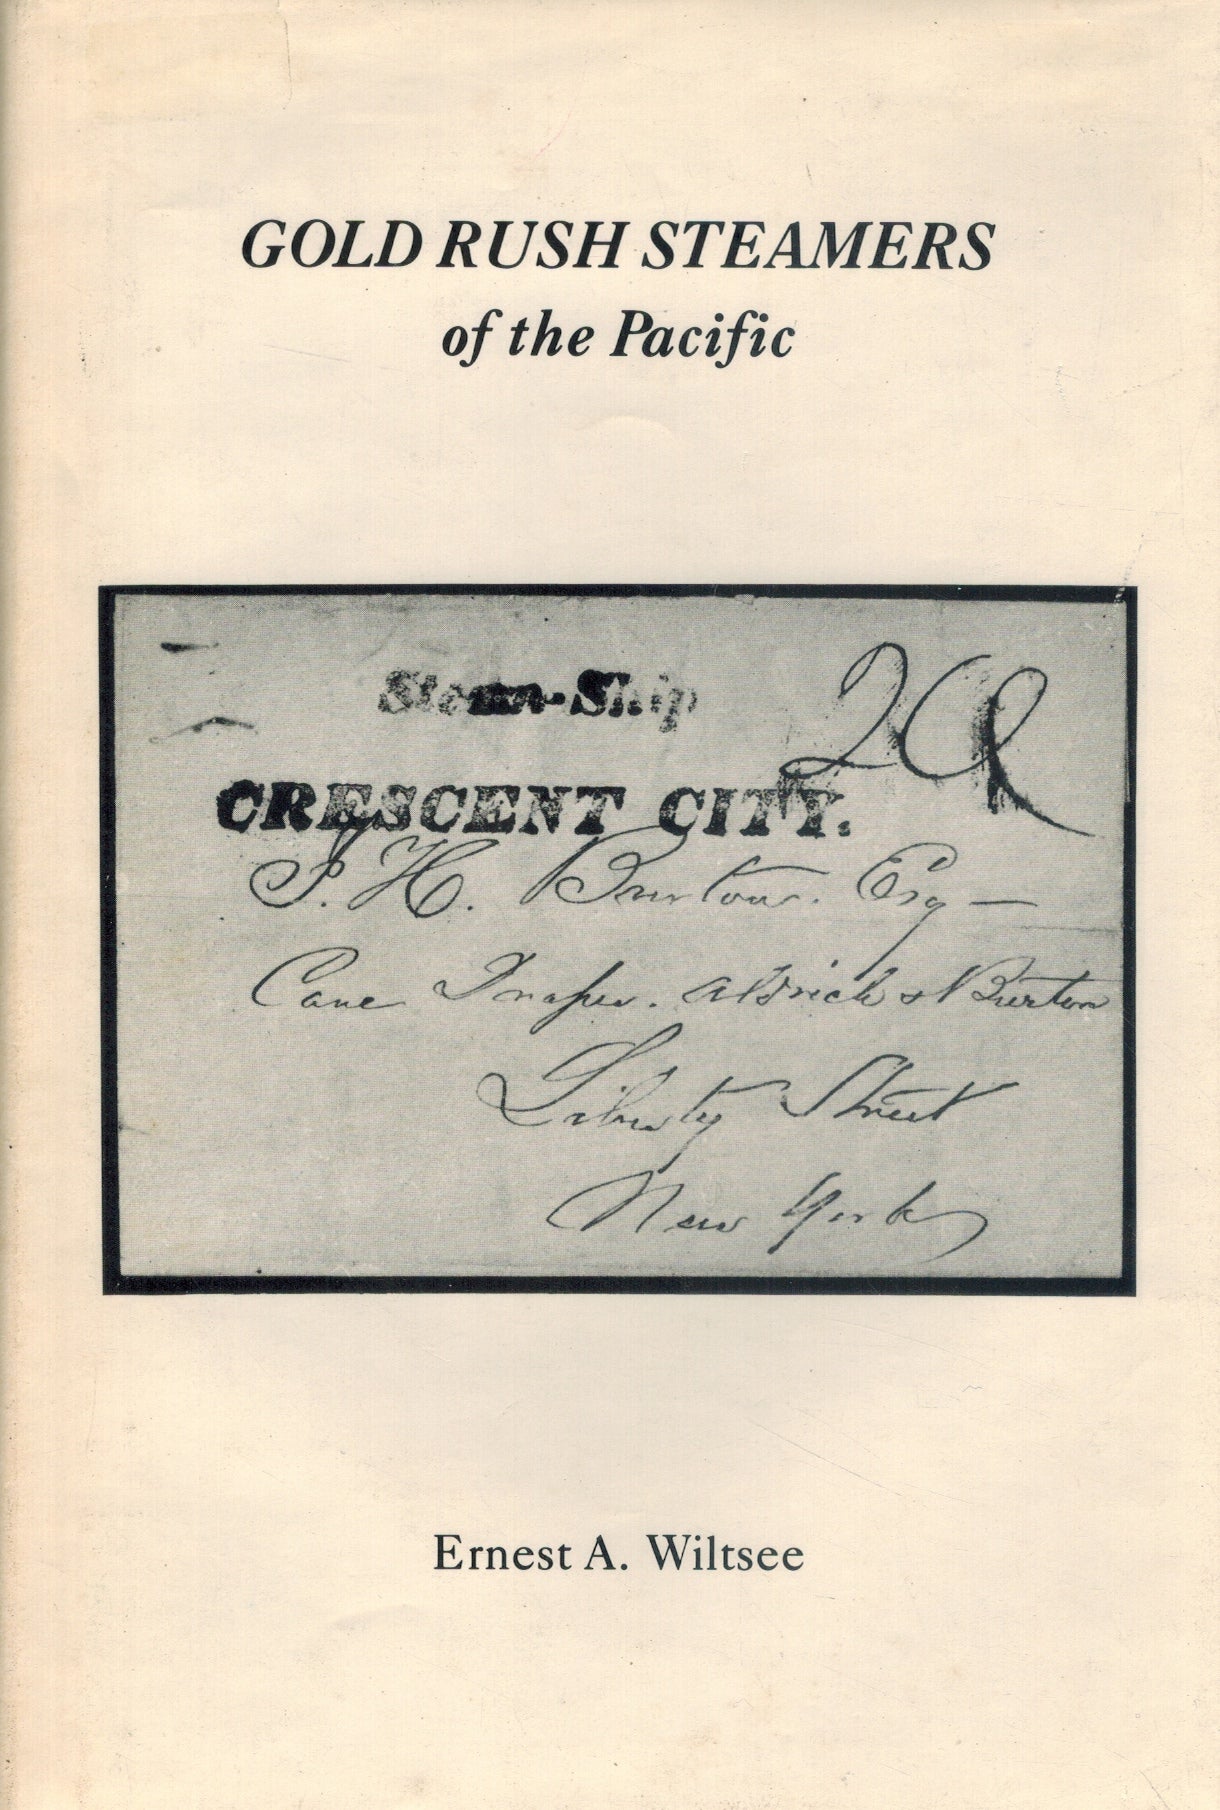 GOLD RUSH STEAMERS
of the Pacific
20
Steam-Ship
CRESCENT CITY.
J. H. Burton. Esq —
Care Draper. Aldrich & Burton
Liberty Street
New York
Ernest A. Wiltsee